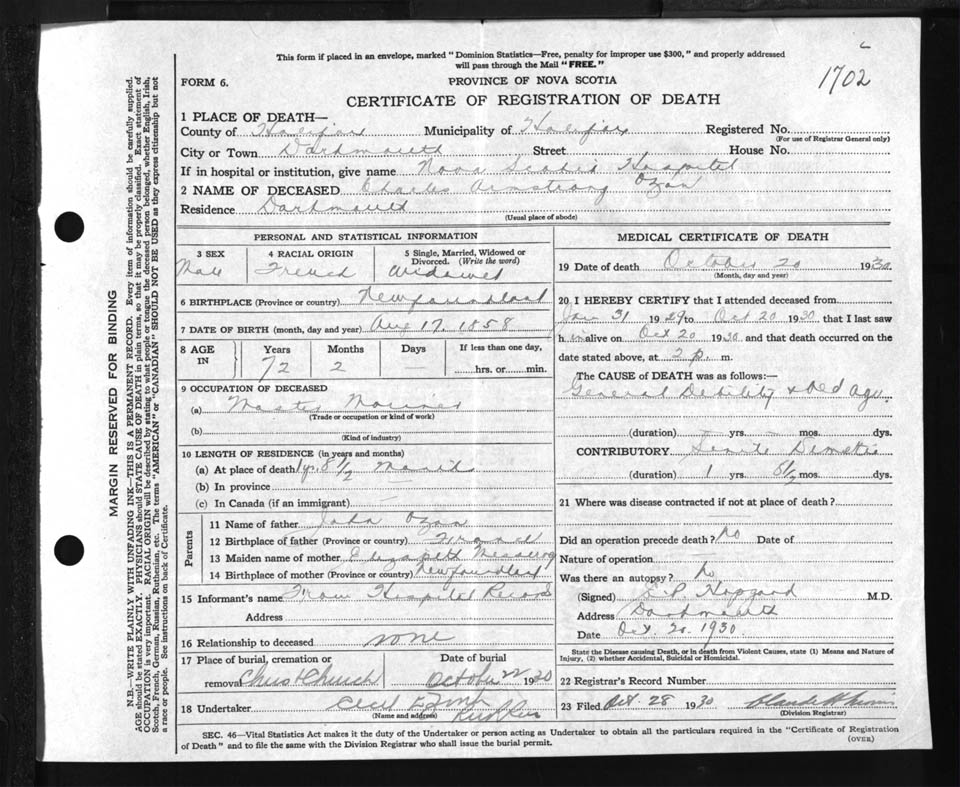 This form if placed in an envelope, marked "Dominion Statistics—Free, penalty for improper use $300," and properly addressed
will pass through the Mail "FREE."
1702
FORM 6.
PROVINCE OF NOVA SCOTIA
CERTIFICATE OF REGISTRATION OF DEATH
1 PLACE OF DEATH—
County of Halifax Municipality of Halifax Registered No.
(For use of Registrar General only)
City or Town Dartmouth Street House No.
If in hospital or institution, give name Nova Scotia Hospital
2 NAME OF DECEASED Charles Armstrong Ozon
Residence Dartmouth
(Usual place of abode)
PERSONAL AND STATISTICAL INFORMATION
3 SEX
Male
4 RACIAL ORIGIN
French
5 Single, Married, Widowed or
Divorced. (Write the word)
Widowed
6 BIRTHPLACE (Province or country) Newfoundland
7 DATE OF BIRTH (month, day and year) Aug 17. 1858
8 AGE
IN
Years
72
Months
2
Days
—
If less than one day,
hrs. or min.
9 OCCUPATION OF DECEASED
(a) Master Mariner
(Trade or occupation or kind of work)
(b)
(Kind of industry)
10 LENGTH OF RESIDENCE (in years and months)
(a) At place of death 1 yr. 8 1/2 Month
(b) In province —
(c) In Canada (if an immigrant) —
Parents
11 Name of father John Ozon
12 Birthplace of father (Province or country) France
13 Maiden name of mother Elizabeth
14 Birthplace of mother (Province or country) Newfoundland
15 Informant's name From Hospital Records
Address
16 Relationship to deceased none
17 Place of burial, cremation or
removal Christ Church
Date of burial
October 22 1930
18 Undertaker Cecil E.
(Name and address)
MEDICAL CERTIFICATE OF DEATH
19 Date of death October 20 1930
(Month, day and year)
20 I HEREBY CERTIFY that I attended deceased from
Jan 31 1929 to Oct 20 1930 that I last saw
him alive on Oct 20 1930 and that death occurred on the
date stated above, at 2 p. m.
The CAUSE of DEATH was as follows:—
General Debility & Old Age
(duration) yrs. mos. dys.
CONTRIBUTORY Senile Dementia
(duration) 1 yrs. 8 1/2 mos. dys.
21 Where was disease contracted if not at place of death?
Did an operation precede death? No Date of
Nature of operation
Was there an autopsy? No
(Signed) M.D.
Address Dartmouth
Date Oct. 20. 1930.
State the Disease causing Death, or in death from Violent Causes, state (1) Means and Nature of
Injury, (2) whether Accidental, Suicidal or Homicidal.
22 Registrar's Record Number
23 Filed Oct. 28 1930
(Division Registrar)
SEC. 46—Vital Statistics Act makes it the duty of the Undertaker or person acting as Undertaker to obtain all the particulars required in the "Certificate of Registration
of Death" and to file the same with the Division Registrar who shall issue the burial permit.
(OVER)
MARGIN RESERVED FOR BINDING
N.B.—WRITE PLAINLY WITH UNFADING INK—THIS IS A PERMANENT RECORD. Every item of information should be carefully supplied.
AGE should be stated EXACTLY. PHYSICIANS should STATE CAUSE OF DEATH in plain terms, so that it may be properly classified. Exact statement of
OCCUPATION is very important. RACIAL ORIGIN will be described by stating to what people or tongue the deceased person belonged, whether English, Irish,
Scotch, French, German, Russian, Ruthenian, etc. The terms "AMERICAN" or "CANADIAN" SHOULD NOT BE USED as they express citizenship but not
a race or people. See instructions on back of Certificate.